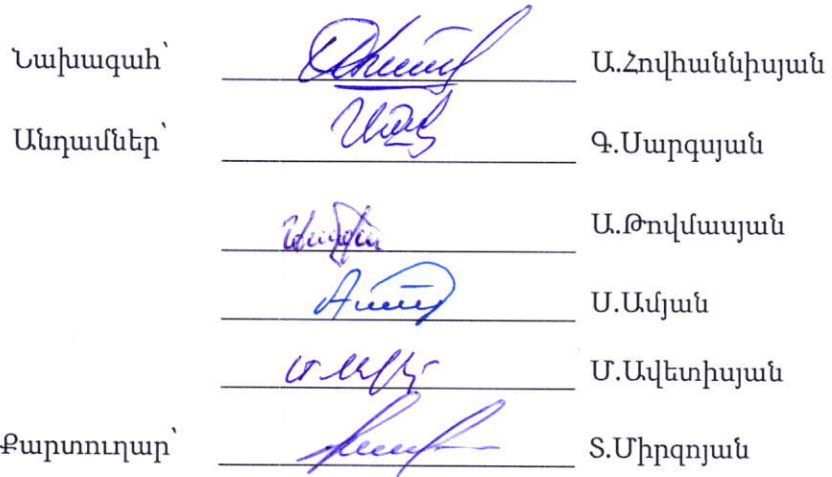 Նախագահ՝ Ա.Հովհաննիսյան
Անդամներ՝ Գ.Սարգսյան
Ա.Թովմասյան
Ս.Ամյան
Մ.Ավետիսյան
Քարտուղար՝ Տ.Միրզոյան